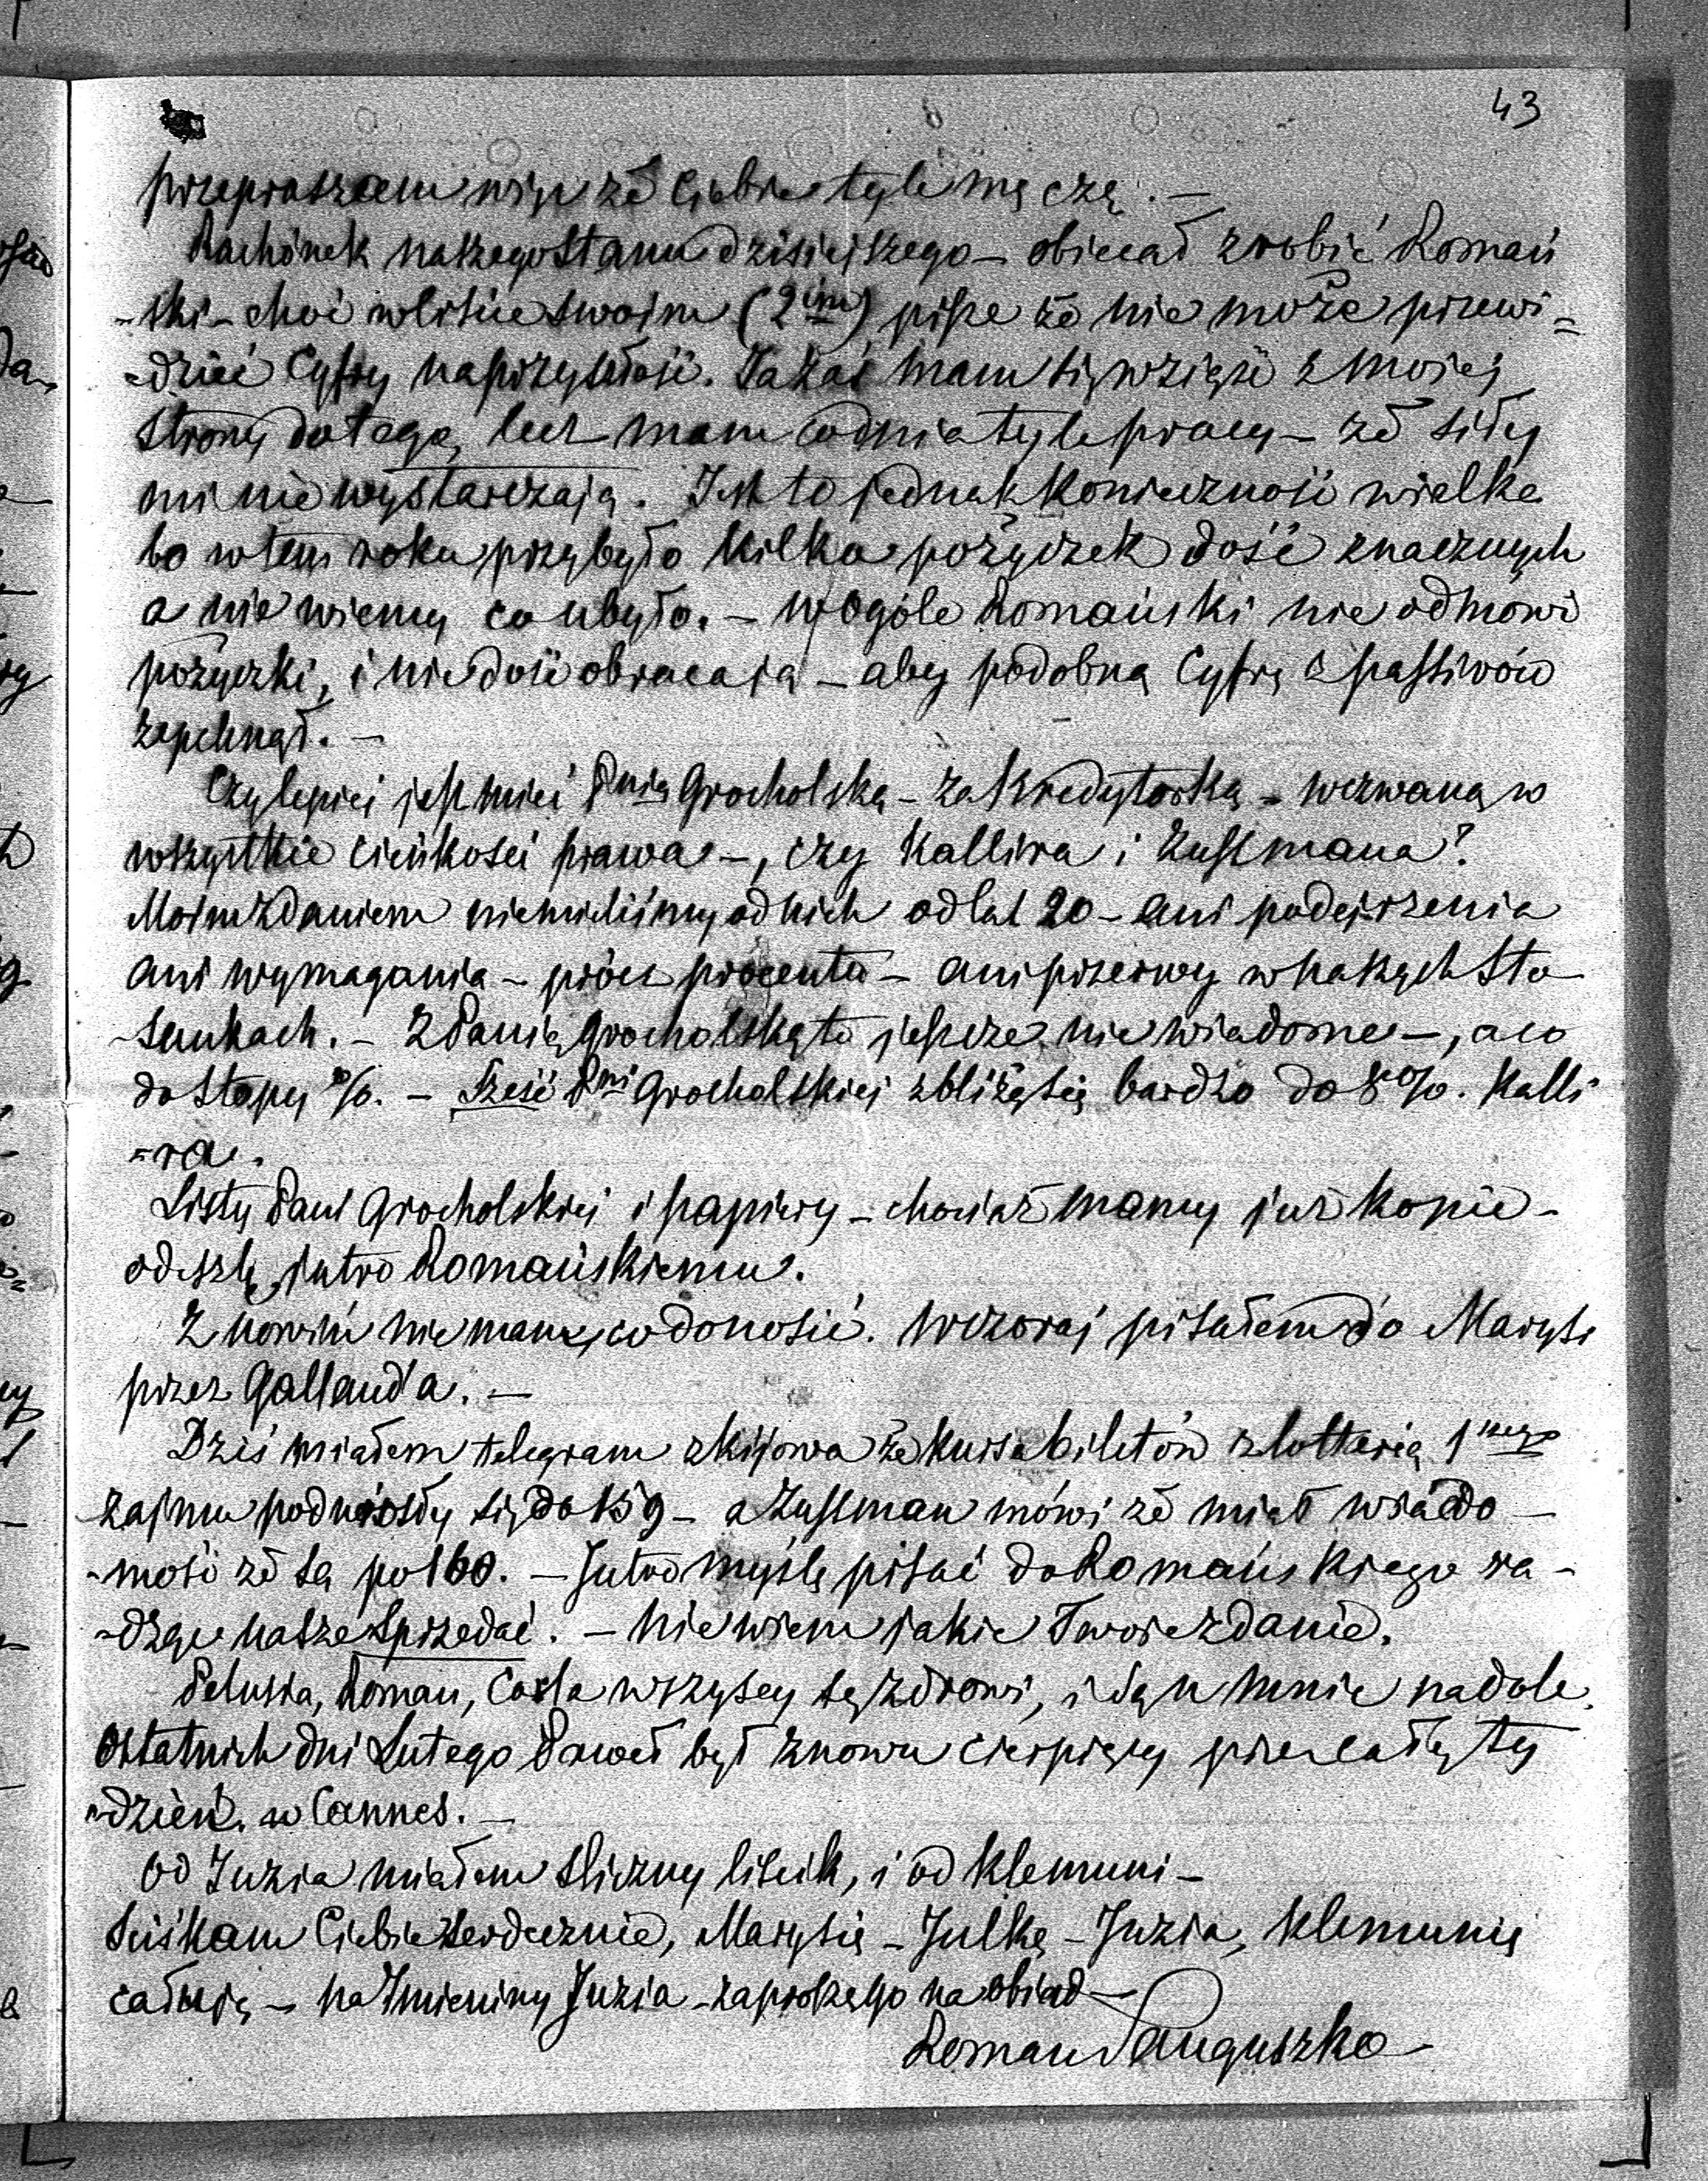 43
przepraszam więc że Ciebie tyle męczę. —
Rachónek naszego stanu dzisiejszego — obiecał zrobić Romań
-ski — choć w liście swoim (2im) pisze że nie może przewi=
-dzieć Cyfry na przyszłość. Ja zaś mam się wziąść z mojej
strony do tego, lecz mam codnia tyle pracy — że siły
mi nie wystarczają. Jest to jednak konieczność wielka
bo w tem roku przybyło kilka pożyczek dość znacznych
a nie wiemy co ubyło. — Wogóle Romański nie odmówi
pożyczki, i nie dość obraca ją — aby podobną Cyfrę z passiwów
zepchnął. —
Czy lepiej jest mieć Pnią Grocholską — za Kredytorką — wezwaną w
wszystkie cieńkości prawa —, czy Kallira i Zussmana?
Moim zdaniem niemieliśmy od nich od lat 20 — ani podejrzenia
ani wymagania — prócz procentu — ani przerwy w naszych sto
-sunkach. — Z Panią Grocholską to jeszcze nie wiadome —, a co
do stopy %. — Sześć Pni Grocholskiej zbliżą się bardzo do 8%. Kalli
=ra.
Listy Pani Grocholskiej i papiery — chociaż mamy już kopie —
odeszlę jutro Romańskiemu.
Z nowin nie mam co donosić. Wczoraj pisałem do Marysi
przez Gallanda. —
Dziś miałem telegram z Kijowa że kursa biletów z lotterią 1szego
zajmu podniosły się do 159 — a Zussman mówi że miał wiado—
-mość że są po 160. — Jutro myślę pisać do Romańskiego ra-
-dząc nasze sprzedać. — Nie wiem jakie Twoje zdanie.
Pelusia, Roman, Casla wszyscy są zdrowi, i są u mnie na dole.
Ostatnich dni Lutego Paweł był znowu cierpiący przez cały ty
-dzień w Cannes. —
Od Juzia miałem śliczny liścik, i od Klemuni —
Ściskam Ciebie serdecznie, Marysię — Julkę — Juzia, Klemunię
całuję — na Imieniny Juzia zaproszę go na obiad —
Roman Sanguszko